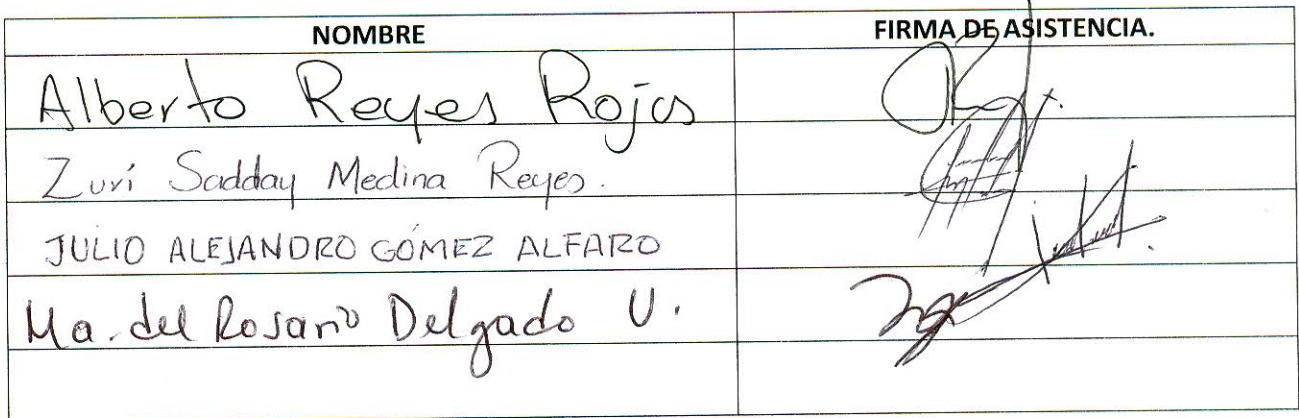 NOMBRE FIRMA DE ASISTENCIA.
Alberto Reyes Rojas
Zurí Sadday Medina Reyes.
JULIO ALEJANDRO GÓMEZ ALFARO
Ma. del Rosario Delgado U.